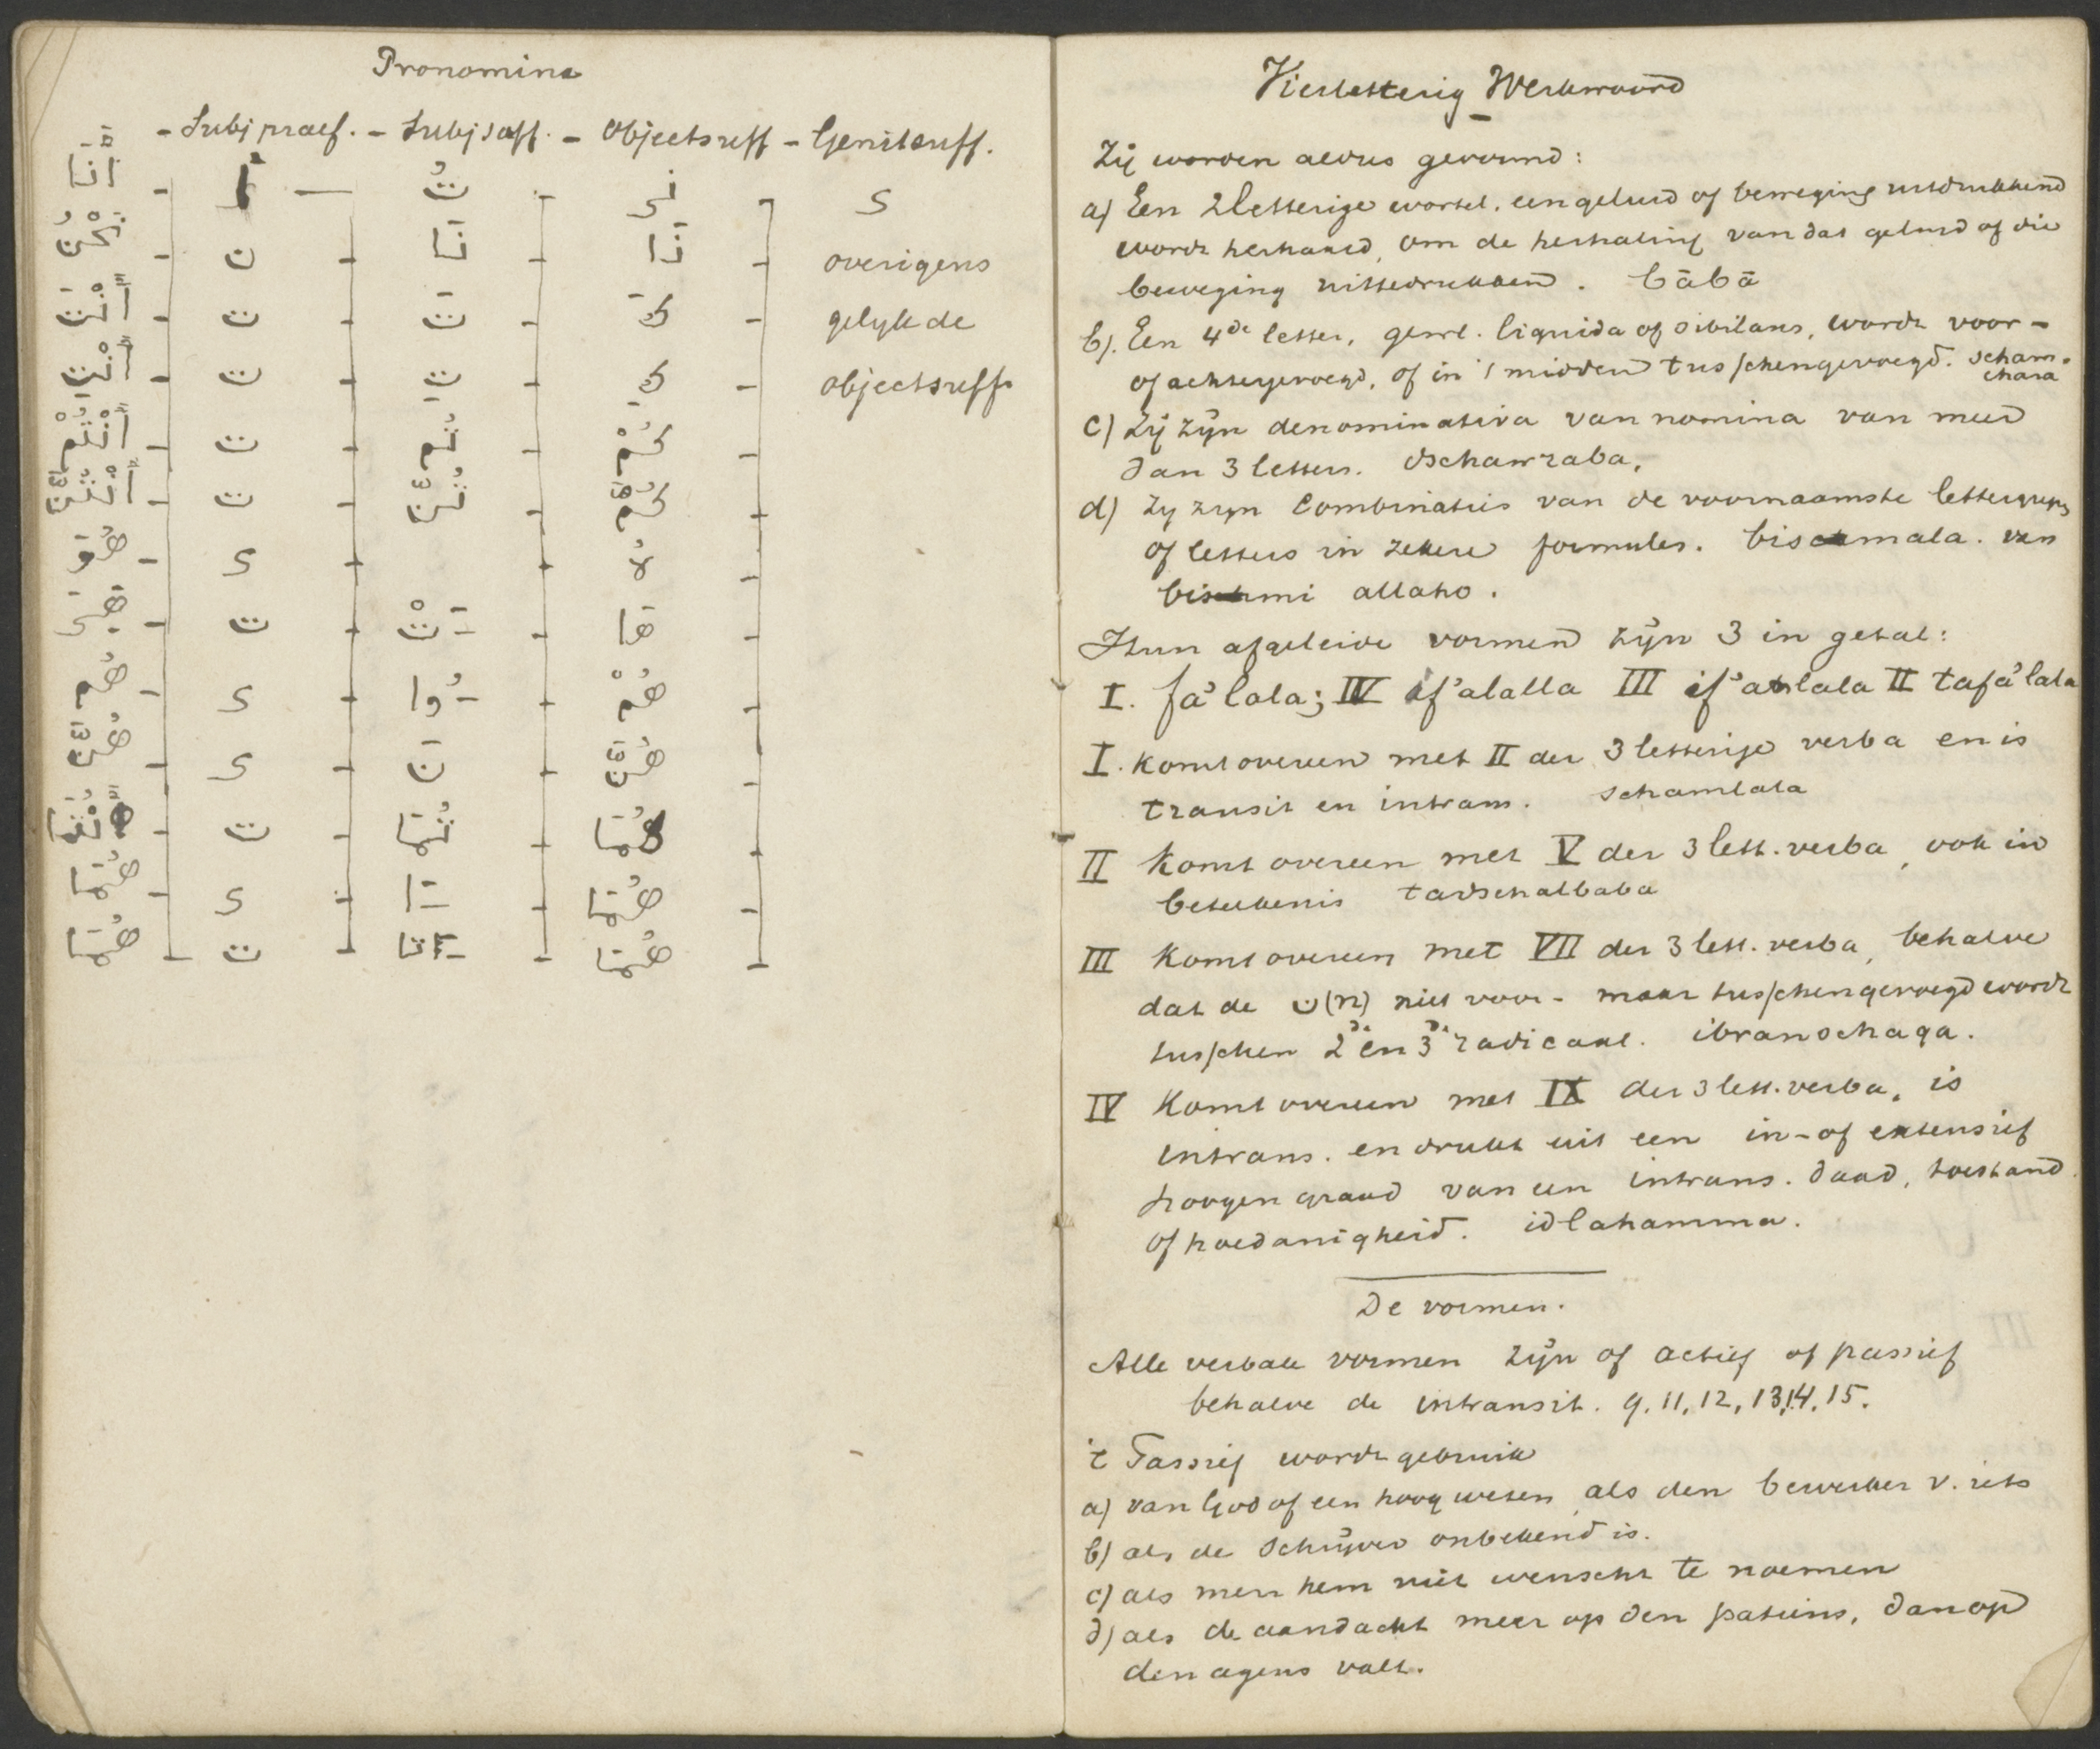 Pronomina
- Subj praef. - Subj suff. - Objectsuff - Genitsuff.
أَنَا - أ — تُ - نِى - ى
نَحْنُ - ن - نَا - نَا - overigens
أَنْتَ - ت - تَ - كَ - gelijk de
أَنْتِ - ت - تِ - كِ - objectsuff
أَنْتُمْ - ت - تُم - كُمْ -
أَنْتُنَّ - ت - تُنَّ -
هُوَ - ى - - هُ -
هِىَ - ت - َتْ - هَا -
هُم - ى - ُوا - هُمْ -
هُنَّ - ى - نَ - هُنَّ -
أَنْتُمَا - ت - تُمَا - كُمَا -
هُمَا - ى - َا - هُمَا -
هُمَا - ت - َتَا - هُمَا -
Vierletterig Werkwoord
Zij worden aldus gevormd:
a) Een 2letterige wortel, een geluid of beweging uitdrukkend
wordt herhaald, om de herhaling van dat geluid of die
beweging uittedrukken. bābā
b). Een 4de letter, gewl. liquida of sibilans, wordt voor-
of achtergevoegd, of in 't midden tusschengevoegd. scham-
chara
c) Zij zijn denominativa van nomina van meer
dan 3 letters. dschawraba,
d) Zij zijn Combinaties van de voornaamste lettergrps
of letters in zekere formules. bismala. van
bismi allaho.
Hun afgeleide vormen zijn 3 in getal:
I. fa'lala; IV if'alalla III if'anlala II tafa'lala
I. komt overeen met II der 3 letterige verba en is
transit en intrans. schamlala
II Komt overeen met V der 3 lett. verba, ook in
beteekenis tadschalbaba
III Komt overeen met VII der 3 lett. verba, behalve
dat de ن (n) niet voor- maar tusschengevoegd wordt
tusschen 2de en 3de radicaal. ibranschaqa.
IV Komt overeen met IX der 3 lett. verba, is
intrans. en drukt uit een in- of extensief
hoogen graad van een intrans. daad, toestand
of hoedanigheid. idlahamma.
De vormen.
Alle verbale vormen zijn of actief of passief
behalve de intransit. 9, 11, 12, 13, 14, 15.
't Passief wordt gebruik
a) van God of een hoog wezen als den bewerker v. iets
b) als de Schrijver onbekend is.
c) als men hem niet wenscht te noemen
d) als de aandacht meer op den patiens, dan op
den agens valt.